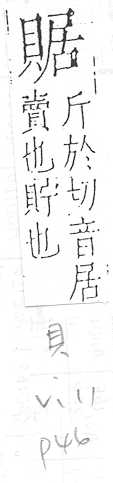 䝻
斤於切音居
賣也貯也
貝
vi 11
p46